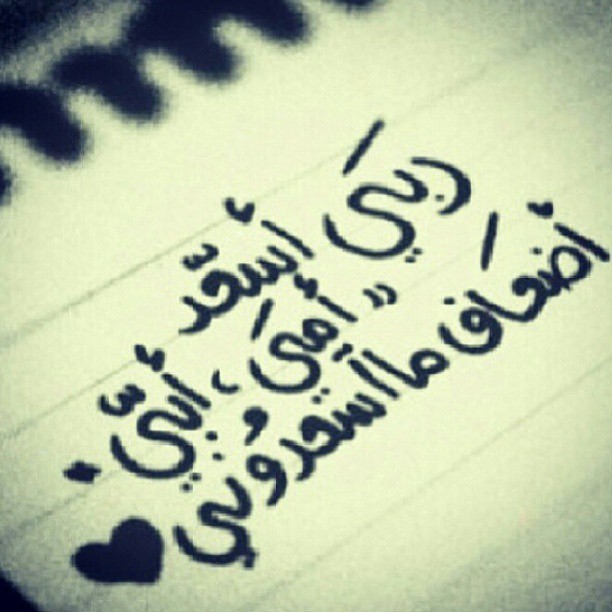 ربيَ أسعّد
" أميَ ، أبيّ .
أضعَاف ماأسعدُوني ♥